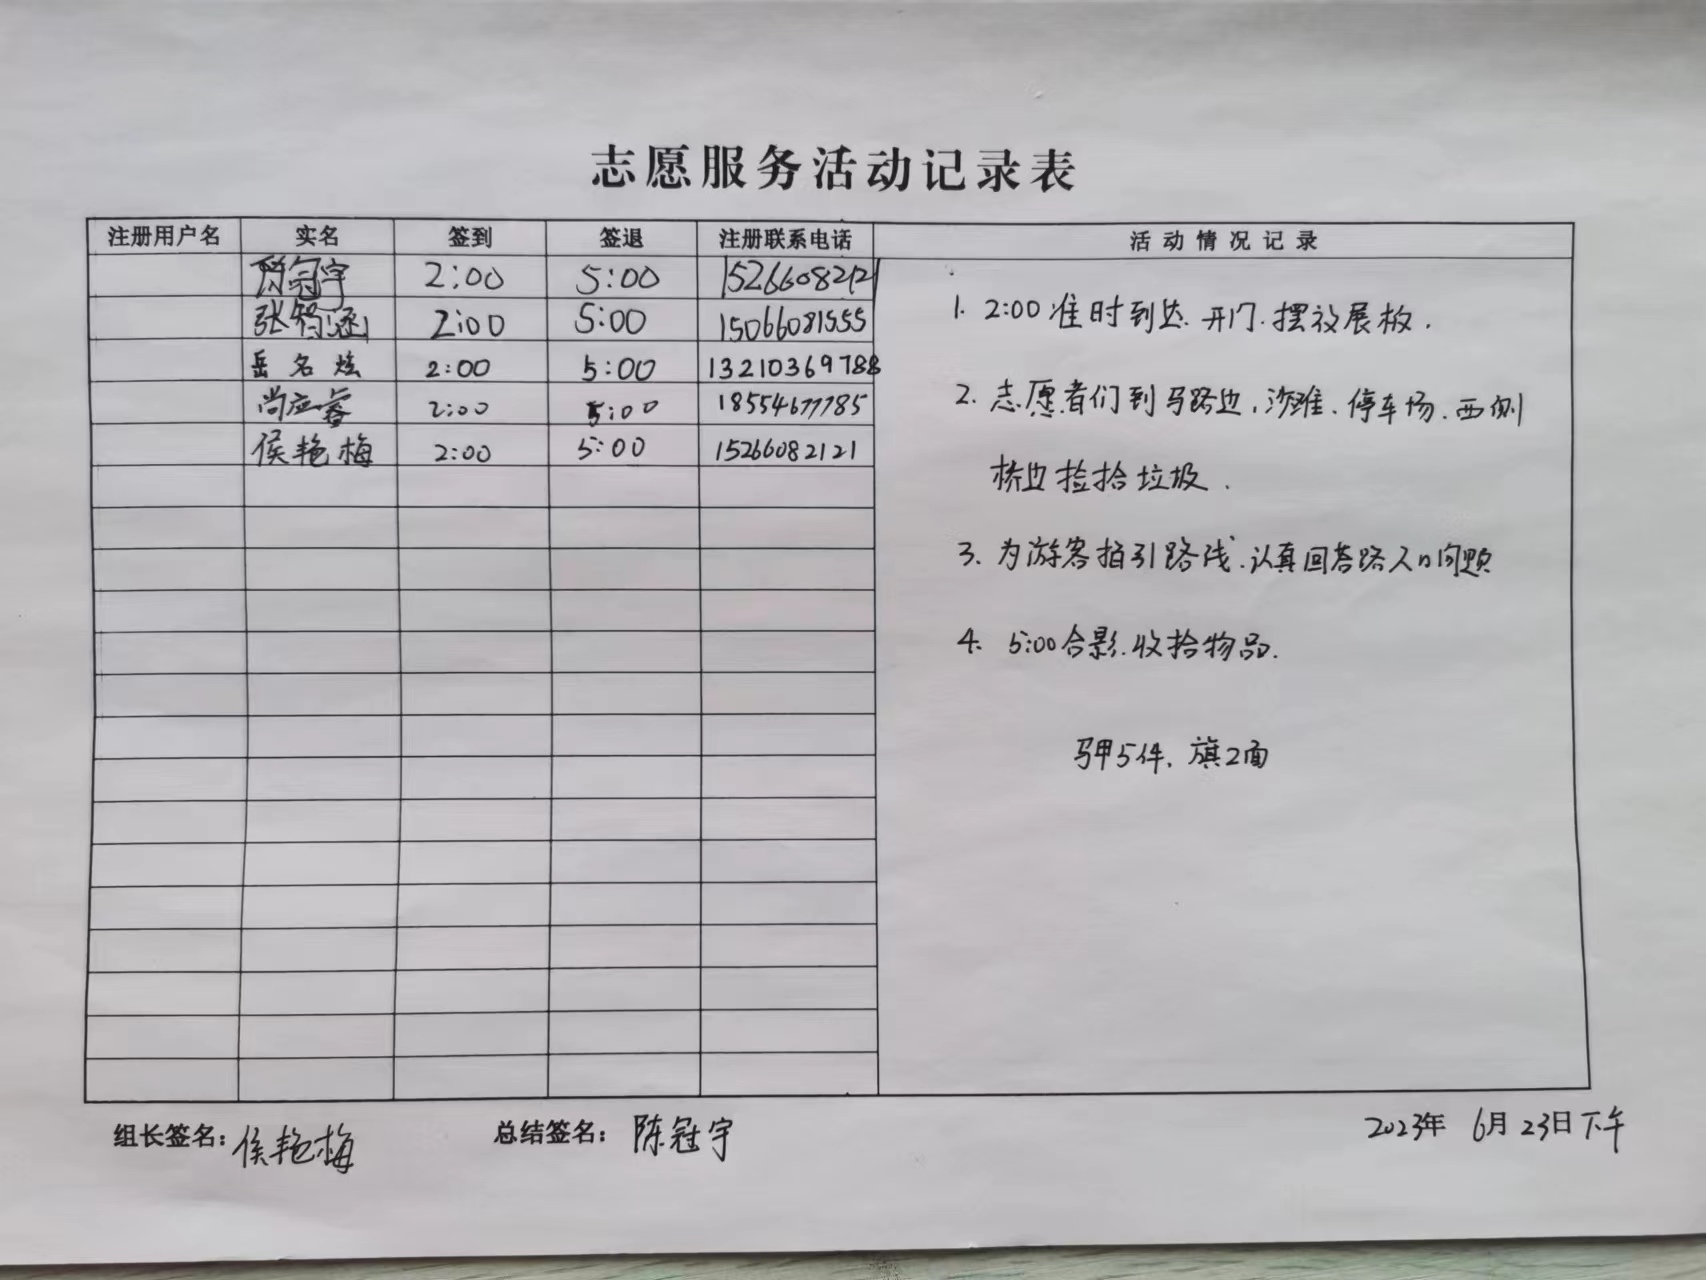 志愿服务活动记录表
注册用户名 实名 签到 签退 注册联系电话 活动情况记录
陈冠宇 2:00 5:00 15266082121
张筠涵 2:00 5:00 15066081555
岳名炫 2:00 5:00 13210369788
尚应睿 2:00 5:00 18554677785
侯艳梅 2:00 5:00 15266082121
1. 2:00准时到达.开门.摆放展板.
2. 志愿者们到马路边,沙滩.停车场.西侧
桥边捡拾垃圾.
3. 为游客指引路线.认真回答路人的问题
4. 5:00合影.收拾物品.
马甲5件.旗2面
组长签名:侯艳梅 总结签名:陈冠宇 2023年 6月23日下午